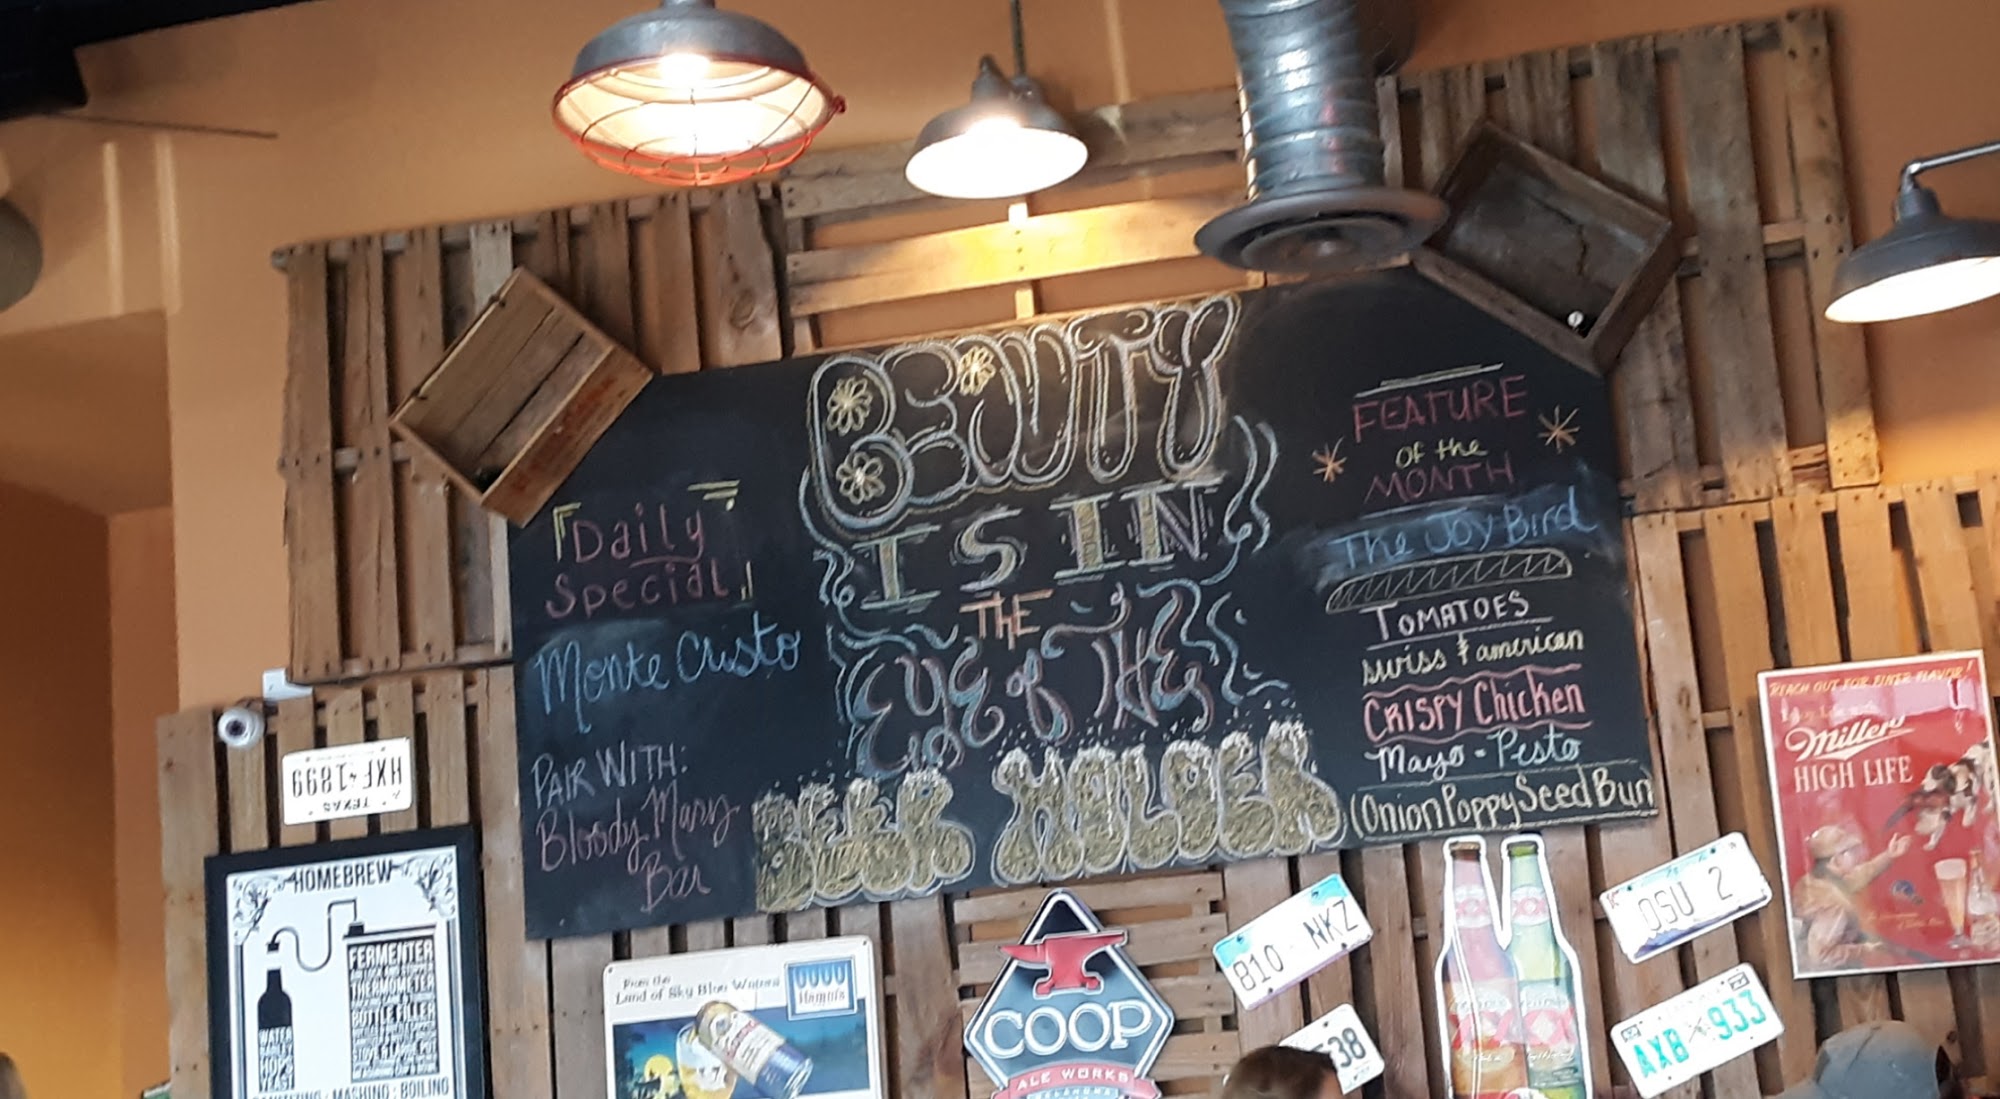 Daily
Special
Monte Cristo
PAIR WITH:
Bloody Mary
Bar
BEWTY
IS IN
THE
EYE of THE
BEER HOLDER
FEATURE
of the
MONTH
The Joy Bird
TOMATOES
swiss & american
CRISPY Chicken
Mayo - Pesto
(Onion Poppy Seed Bun
TEXAS
HXF 1899
HOMEBREW
FERMENTER
THERMOMETER
BOTTLE FILLER
WATER
HOPS
YEAST
MASHING : BOILING
From the
Land of Sky Blue Waters
Hamm's
COOP
ALE WORKS
OKLAHOMA
810 NKZ
38
XX XX
OSU 2
AXB 933
REACH OUT FOR FINER FLAVOR!
Enjoy Life with
Miller
HIGH LIFE